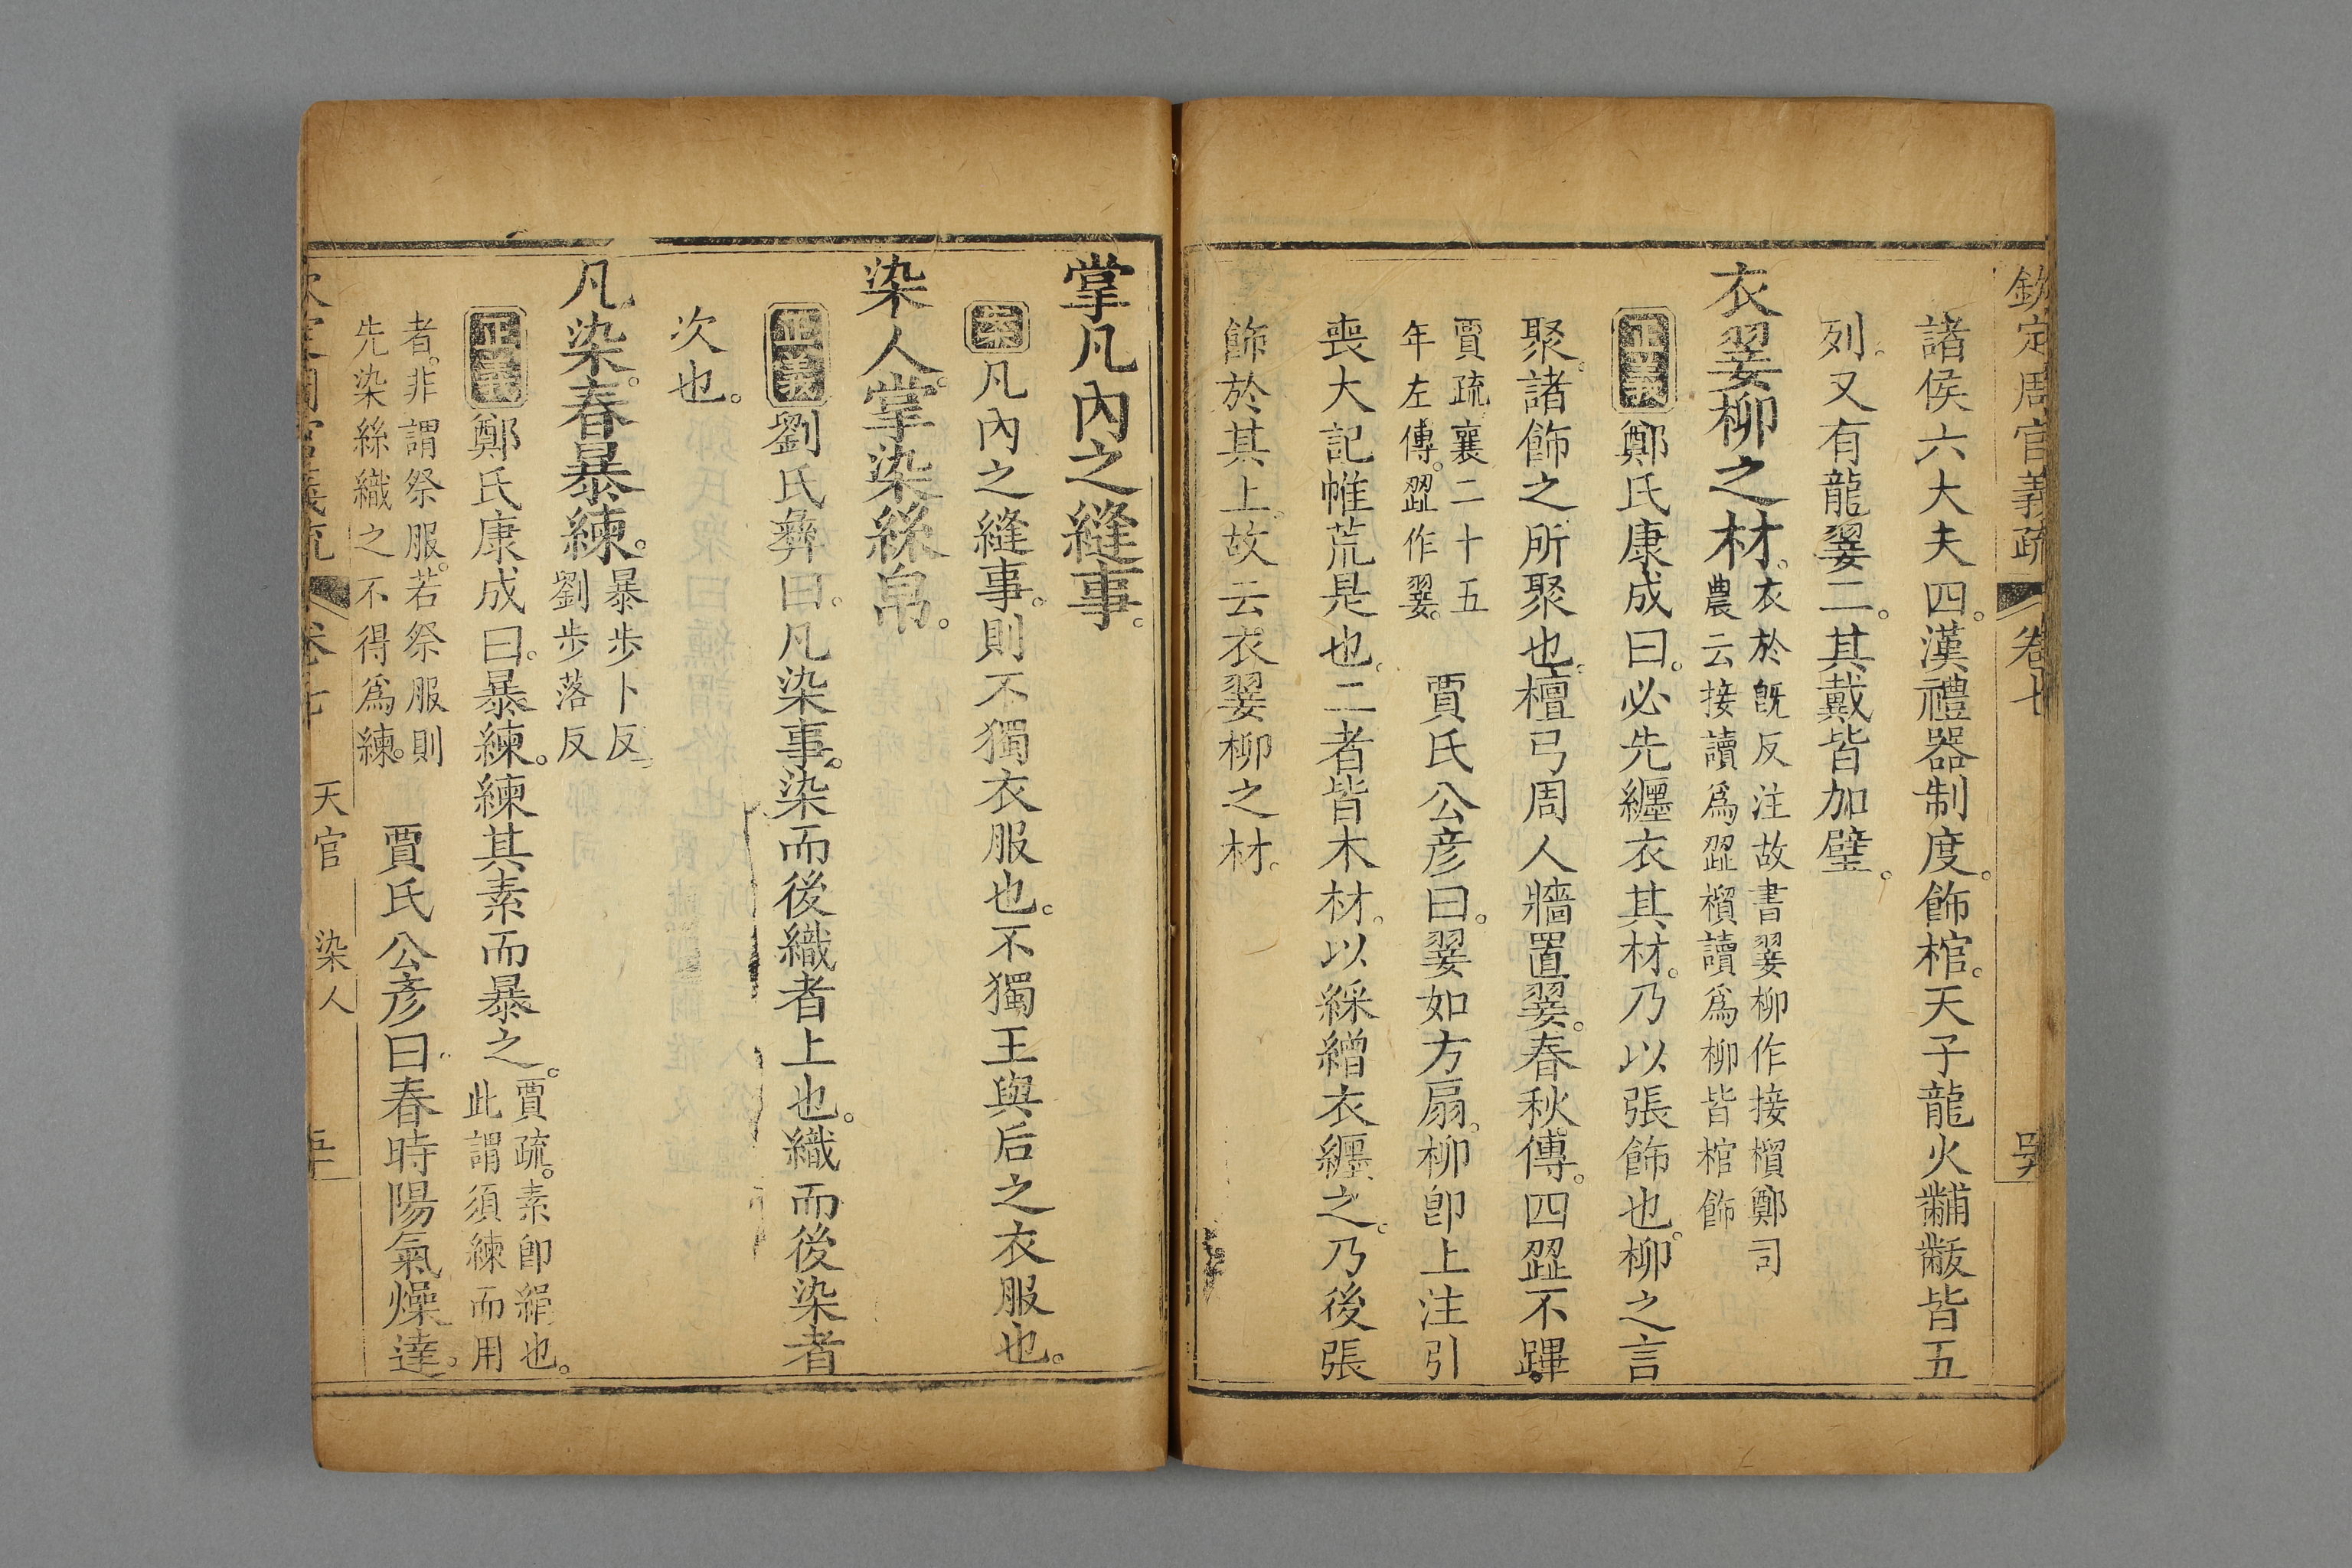 欽定周官義疏 卷七
諸侯六大夫四。漢禮器制度。飾棺。天子龍火黼黻皆五
列。又有龍翣二。其戴皆加璧。
衣翣柳之材。衣於旣反注故書翣柳作接檟鄭司
農云接讀爲歰檟讀爲柳皆棺飾
正義鄭氏康成曰。必先纏衣其材。乃以張飾也。柳之言
聚。諸飾之所聚也。檀弓周人牆置翣。春秋傳。四歰不蹕
賈疏襄二十五
年左傳。歰作翣。
賈氏公彦曰。翣如方扇。柳卽上注引
喪大記帷荒是也。二者皆木材。以綵繒衣纏之。乃後張
飾於其上。故云衣翣柳之材。
掌凡內之縫事。
案凡內之縫事。則不獨衣服也。不獨王與后之衣服也。
染人。掌染絲帛。
正義劉氏彝曰。凡染事。染而後織者上也。織而後染者
次也。
凡染。春暴練。暴步卜反
劉步落反
正義鄭氏康成曰。暴練。練其素而暴之。賈疏。素卽絹也。
此謂須練而用
者。非謂祭服。若祭服則
先染絲織之不得爲練。
賈氏公彦曰。春時陽氣燥達。
天官 染人